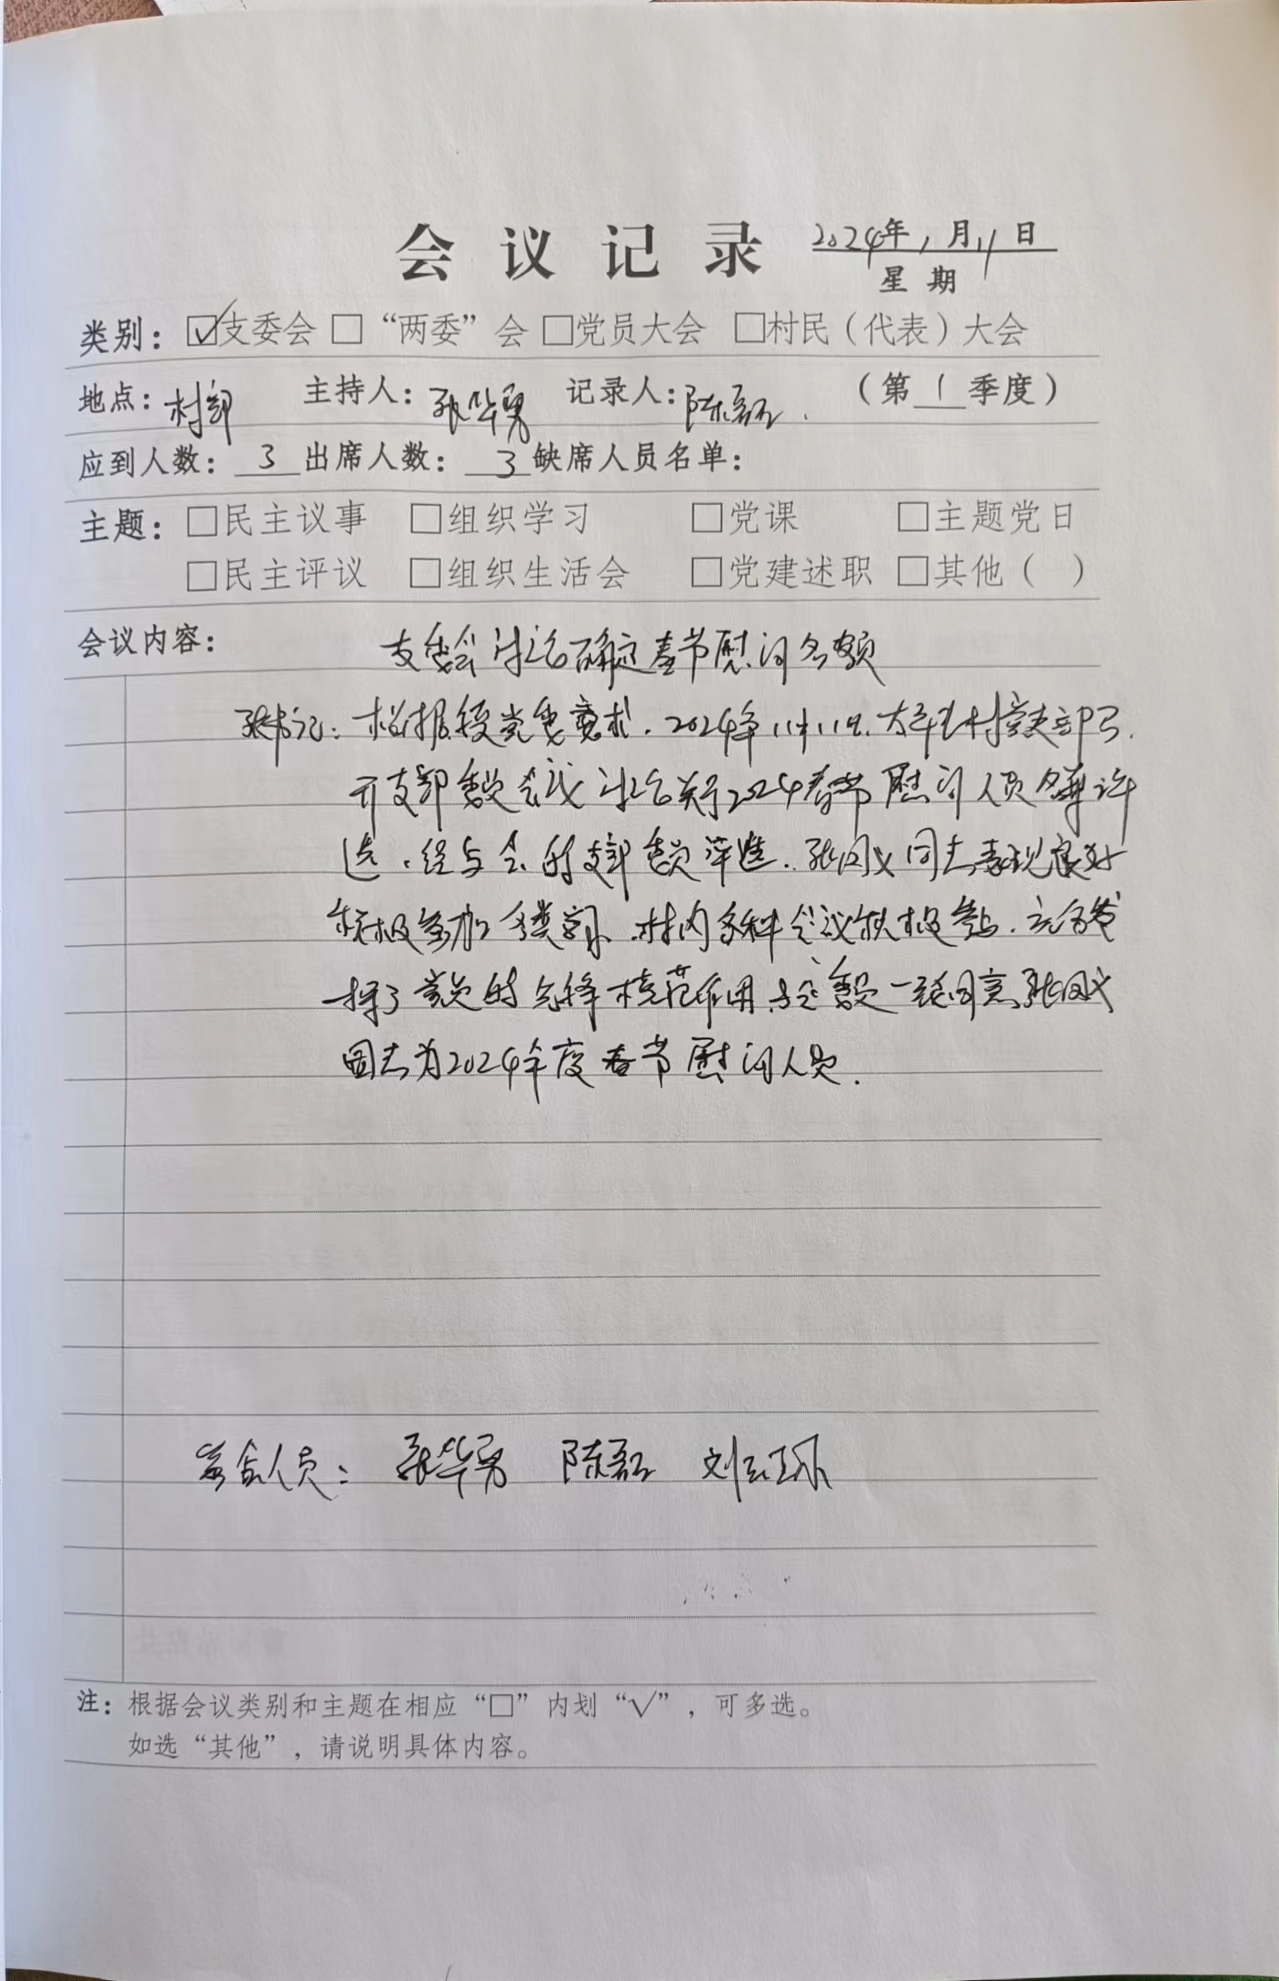 会议记录 2024年1月11日
星期
类别：☑支委会 □“两委”会 □党员大会 □村民（代表）大会
地点：村部 主持人：张华勇 记录人：陈磊 （第1季度）
应到人数：3 出席人数：3 缺席人员名单：
主题：□民主议事 □组织学习 □党课 □主题党日
□民主评议 □组织生活会 □党建述职 □其他（ ）
会议内容： 支委会讨论确定春节慰问名额
张书记：根据镇党委要求，2024年1月11日，村党支部召
开支部委员会议讨论关于2024春节慰问人员名单评
选，经与会的支部委员评选，同志表现良好
积极参加各类，村内各种会议积极参与，充分发
挥了党员的先锋模范作用，委员一致同意
同志为2024年度春节慰问人员.
参会人员：张华勇 陈磊 刘
注：根据会议类别和主题在相应“□”内划“√”，可多选。
如选“其他”，请说明具体内容。